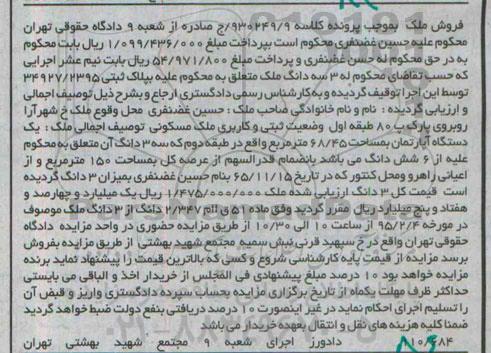 فروش ملک بموجب پرونده کلاسه ۹۳۰۲۴۹/۹/ج صادره از شعبه ۹ دادگاه حقوقی تهران
محکوم علیه حسین غضنفری محکوم است بپرداخت مبلغ ۱/۰۹۹/۴۳۶/۰۰۰ ریال بابت محکوم
به در حق محکوم له حسن غضنفری و پرداخت مبلغ ۵۴/۹۷۱/۸۰۰ ریال بابت نیم عشر اجرایی
که حسب تقاضای محکوم له ۳ سه دانگ ملک متعلق به محکوم علیه بپلاک ثبتی ۳۴۹۲۷/۲۳۹۵
توسط این اجرا توقیف گردیده و به کارشناس رسمی دادگستری ارجاع و بشرح ذیل توصیف اجمالی
و ارزیابی گردیده : نام و نام خانوادگی صاحب ملک : حسین غضنفری محل وقوع ملک خ شهرآرا
روبروی پارک پ ۸۰ طبقه اول وضعیت ثبتی و کاربری ملک مسکونی توصیف اجمالی ملک : یک
دستگاه آپارتمان بمساحت ۶۸/۴۵ مترمربع واقع در طبقه دوم که سه ۳ دانگ آن متعلق به محکوم
علیه از ۶ شش دانگ می باشد بانضمام قدرالسهم از عرصه کل بمساحت ۱۵۰ مترمربع و از
اعیانی راهرو ومحل کنتور که در تاریخ ۶۵/۱۱/۱۵ بنام حسین غضنفری بمیزان ۳ دانگ گردیده
است قیمت کل ۳ دانگ ارزیابی شده ملک ۱/۴۷۵/۰۰۰/۰۰۰ ریال یک میلیارد و چهارصد و
هفتاد و پنج میلیارد ریال مقرر گردید وفق ماده ۵۱ ق ا ام ۲/۳۴۷ دانگ از ۳ دانگ ملک موصوف
در مورخه ۹۵/۲/۴ از ساعت ۱۰ الی ۱۰/۳۰ از طریق مزایده حضوری در واحد مزایده دادگاه
حقوقی تهران واقع در خ سپهبد قرنی نبش سمیه مجتمع شهید بهشتی از طریق مزایده بفروش
برسد مزایده از قیمت پایه کارشناسی شروع و کسی که بالاترین قیمت را پیشنهاد نماید برنده
مزایده خواهد بود ۱۰ درصد مبلغ پیشنهادی فی المجلس از خریدار اخذ و الباقی می بایستی
حداکثر ظرف مهلت یکماه از تاریخ برگزاری مزایده بحساب سپرده دادگستری واریز و قبض آن
را تسلیم اجرای احکام نماید در غیر اینصورت ۱۰ درصد دریافتی بنفع دولت ضبط خواهد گردید
ضمنا کلیه هزینه های نقل و انتقال بعهده خریدار می باشد
دادورز اجرای شعبه ۹ مجتمع شهید بهشتی تهران